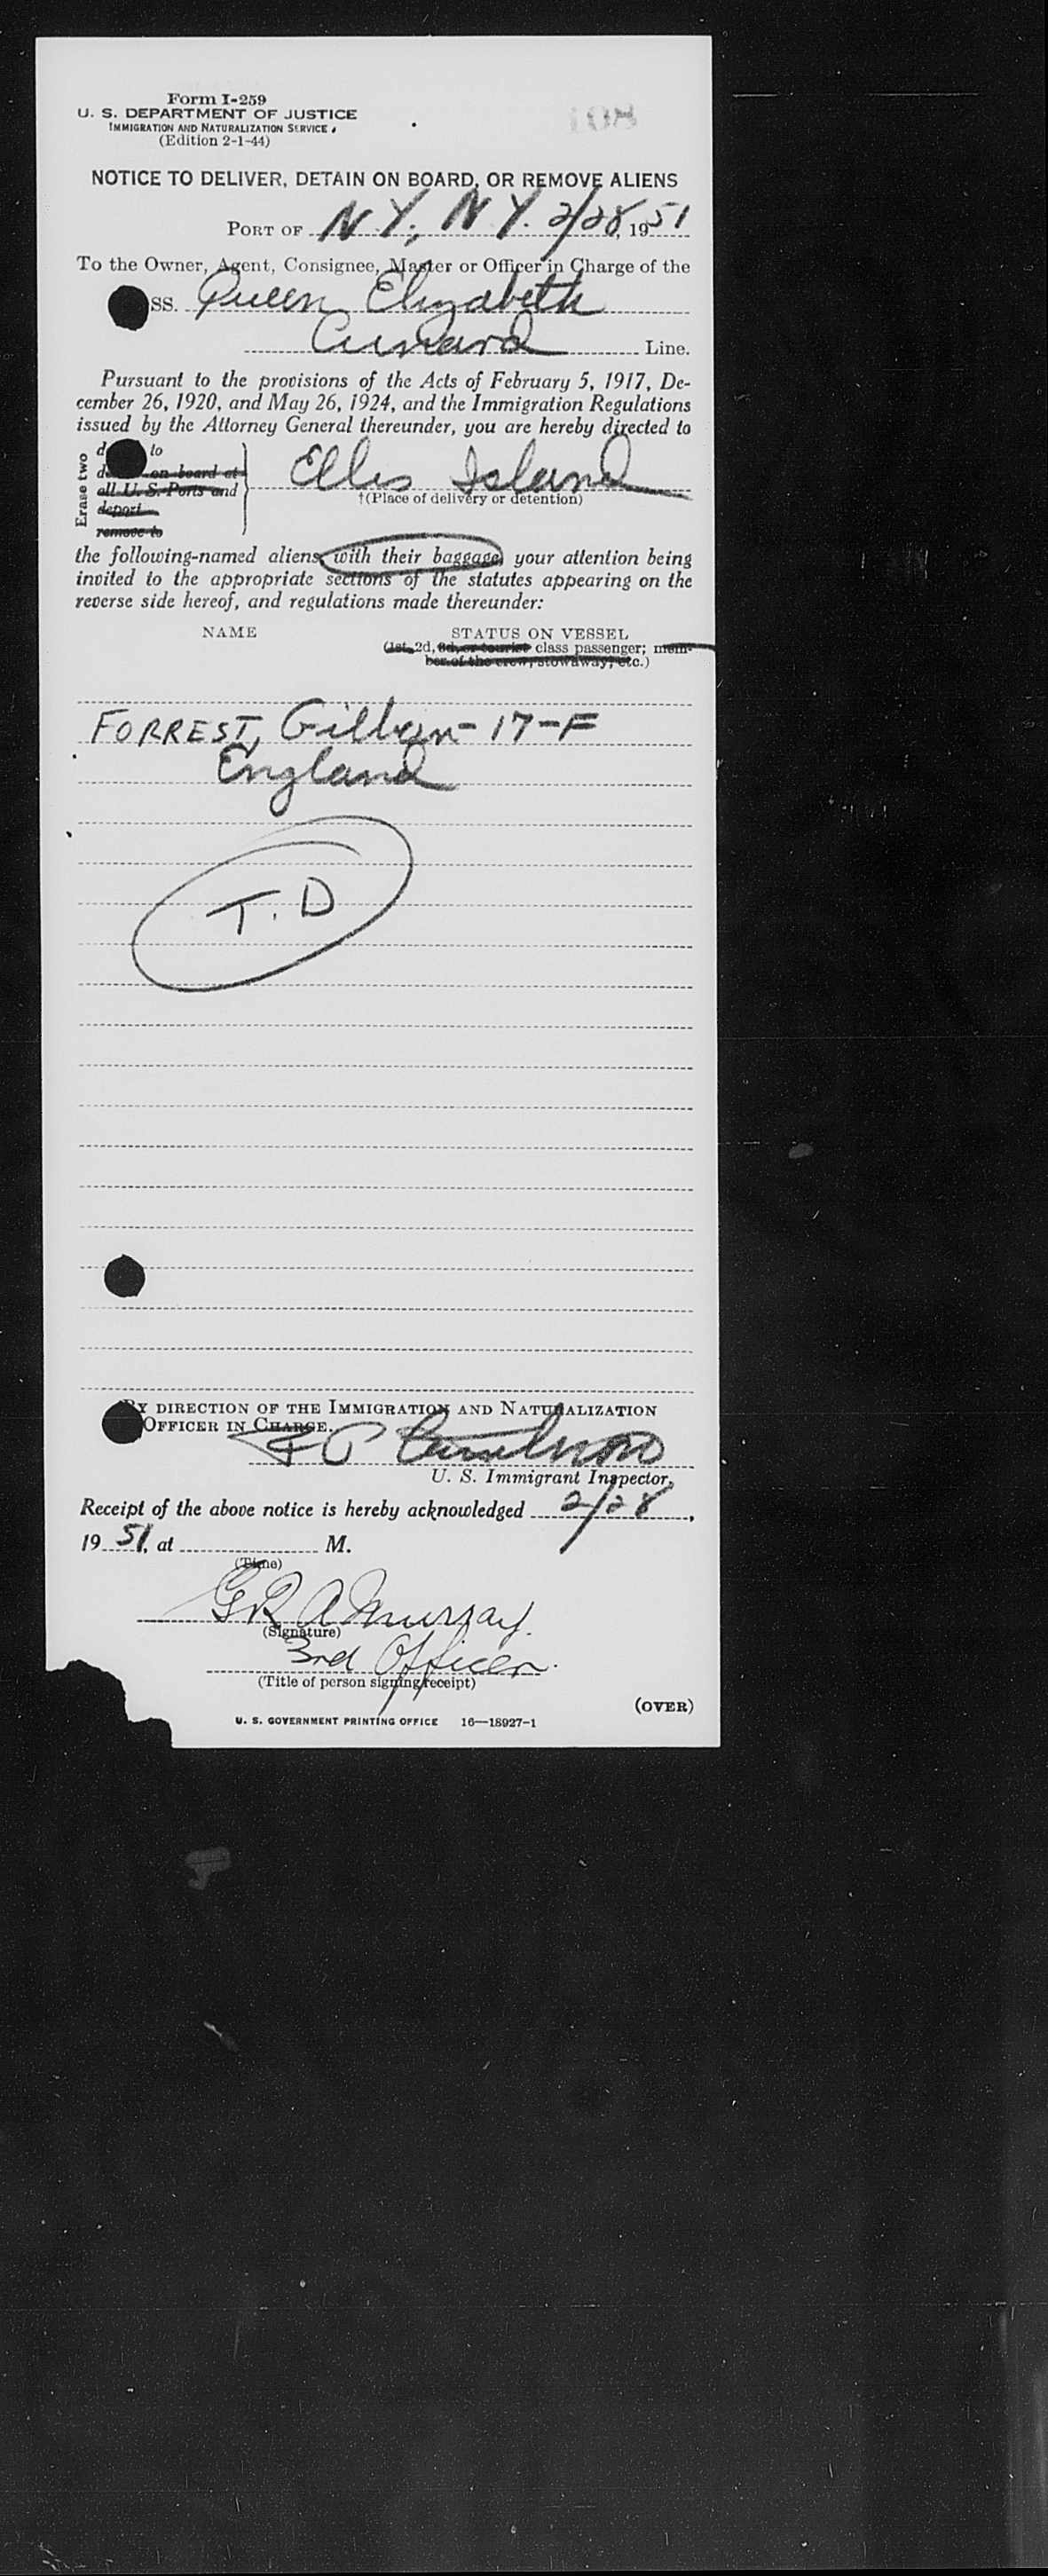 Form I-259
U. S. DEPARTMENT OF JUSTICE
IMMIGRATION AND NATURALIZATION SERVICE
(Edition 2-1-44)
108
NOTICE TO DELIVER, DETAIN ON BOARD, OR REMOVE ALIENS
PORT OF N.Y., N.Y. 2/28, 1951
To the Owner, Agent, Consignee, Master or Officer in Charge of the
SS. Queen Elizabeth
Cunard Line.
Pursuant to the provisions of the Acts of February 5, 1917, De-
cember 26, 1920, and May 26, 1924, and the Immigration Regulations
issued by the Attorney General thereunder, you are hereby directed to
Erase two
to
on board at
all U. S. Ports and
deport
remove to
Ellis Island
†(Place of delivery or detention)
the following-named aliens with their baggage, your attention being
invited to the appropriate sections of the statutes appearing on the
reverse side hereof, and regulations made thereunder:
NAME STATUS ON VESSEL
(1st, 2d, 3d, or tourist class passenger; mem-
ber of the crew, stowaway, etc.)
FORREST, - 17 - F
England
T. D
BY DIRECTION OF THE IMMIGRATION AND NATURALIZATION
OFFICER IN CHARGE.
U. S. Immigrant Inspector.
Receipt of the above notice is hereby acknowledged 2/28,
1951, at M.
(Time)
G R A Murray.
(Signature)
3rd Officer.
(Title of person signing receipt)
(OVER)
U. S. GOVERNMENT PRINTING OFFICE 16—18927-1